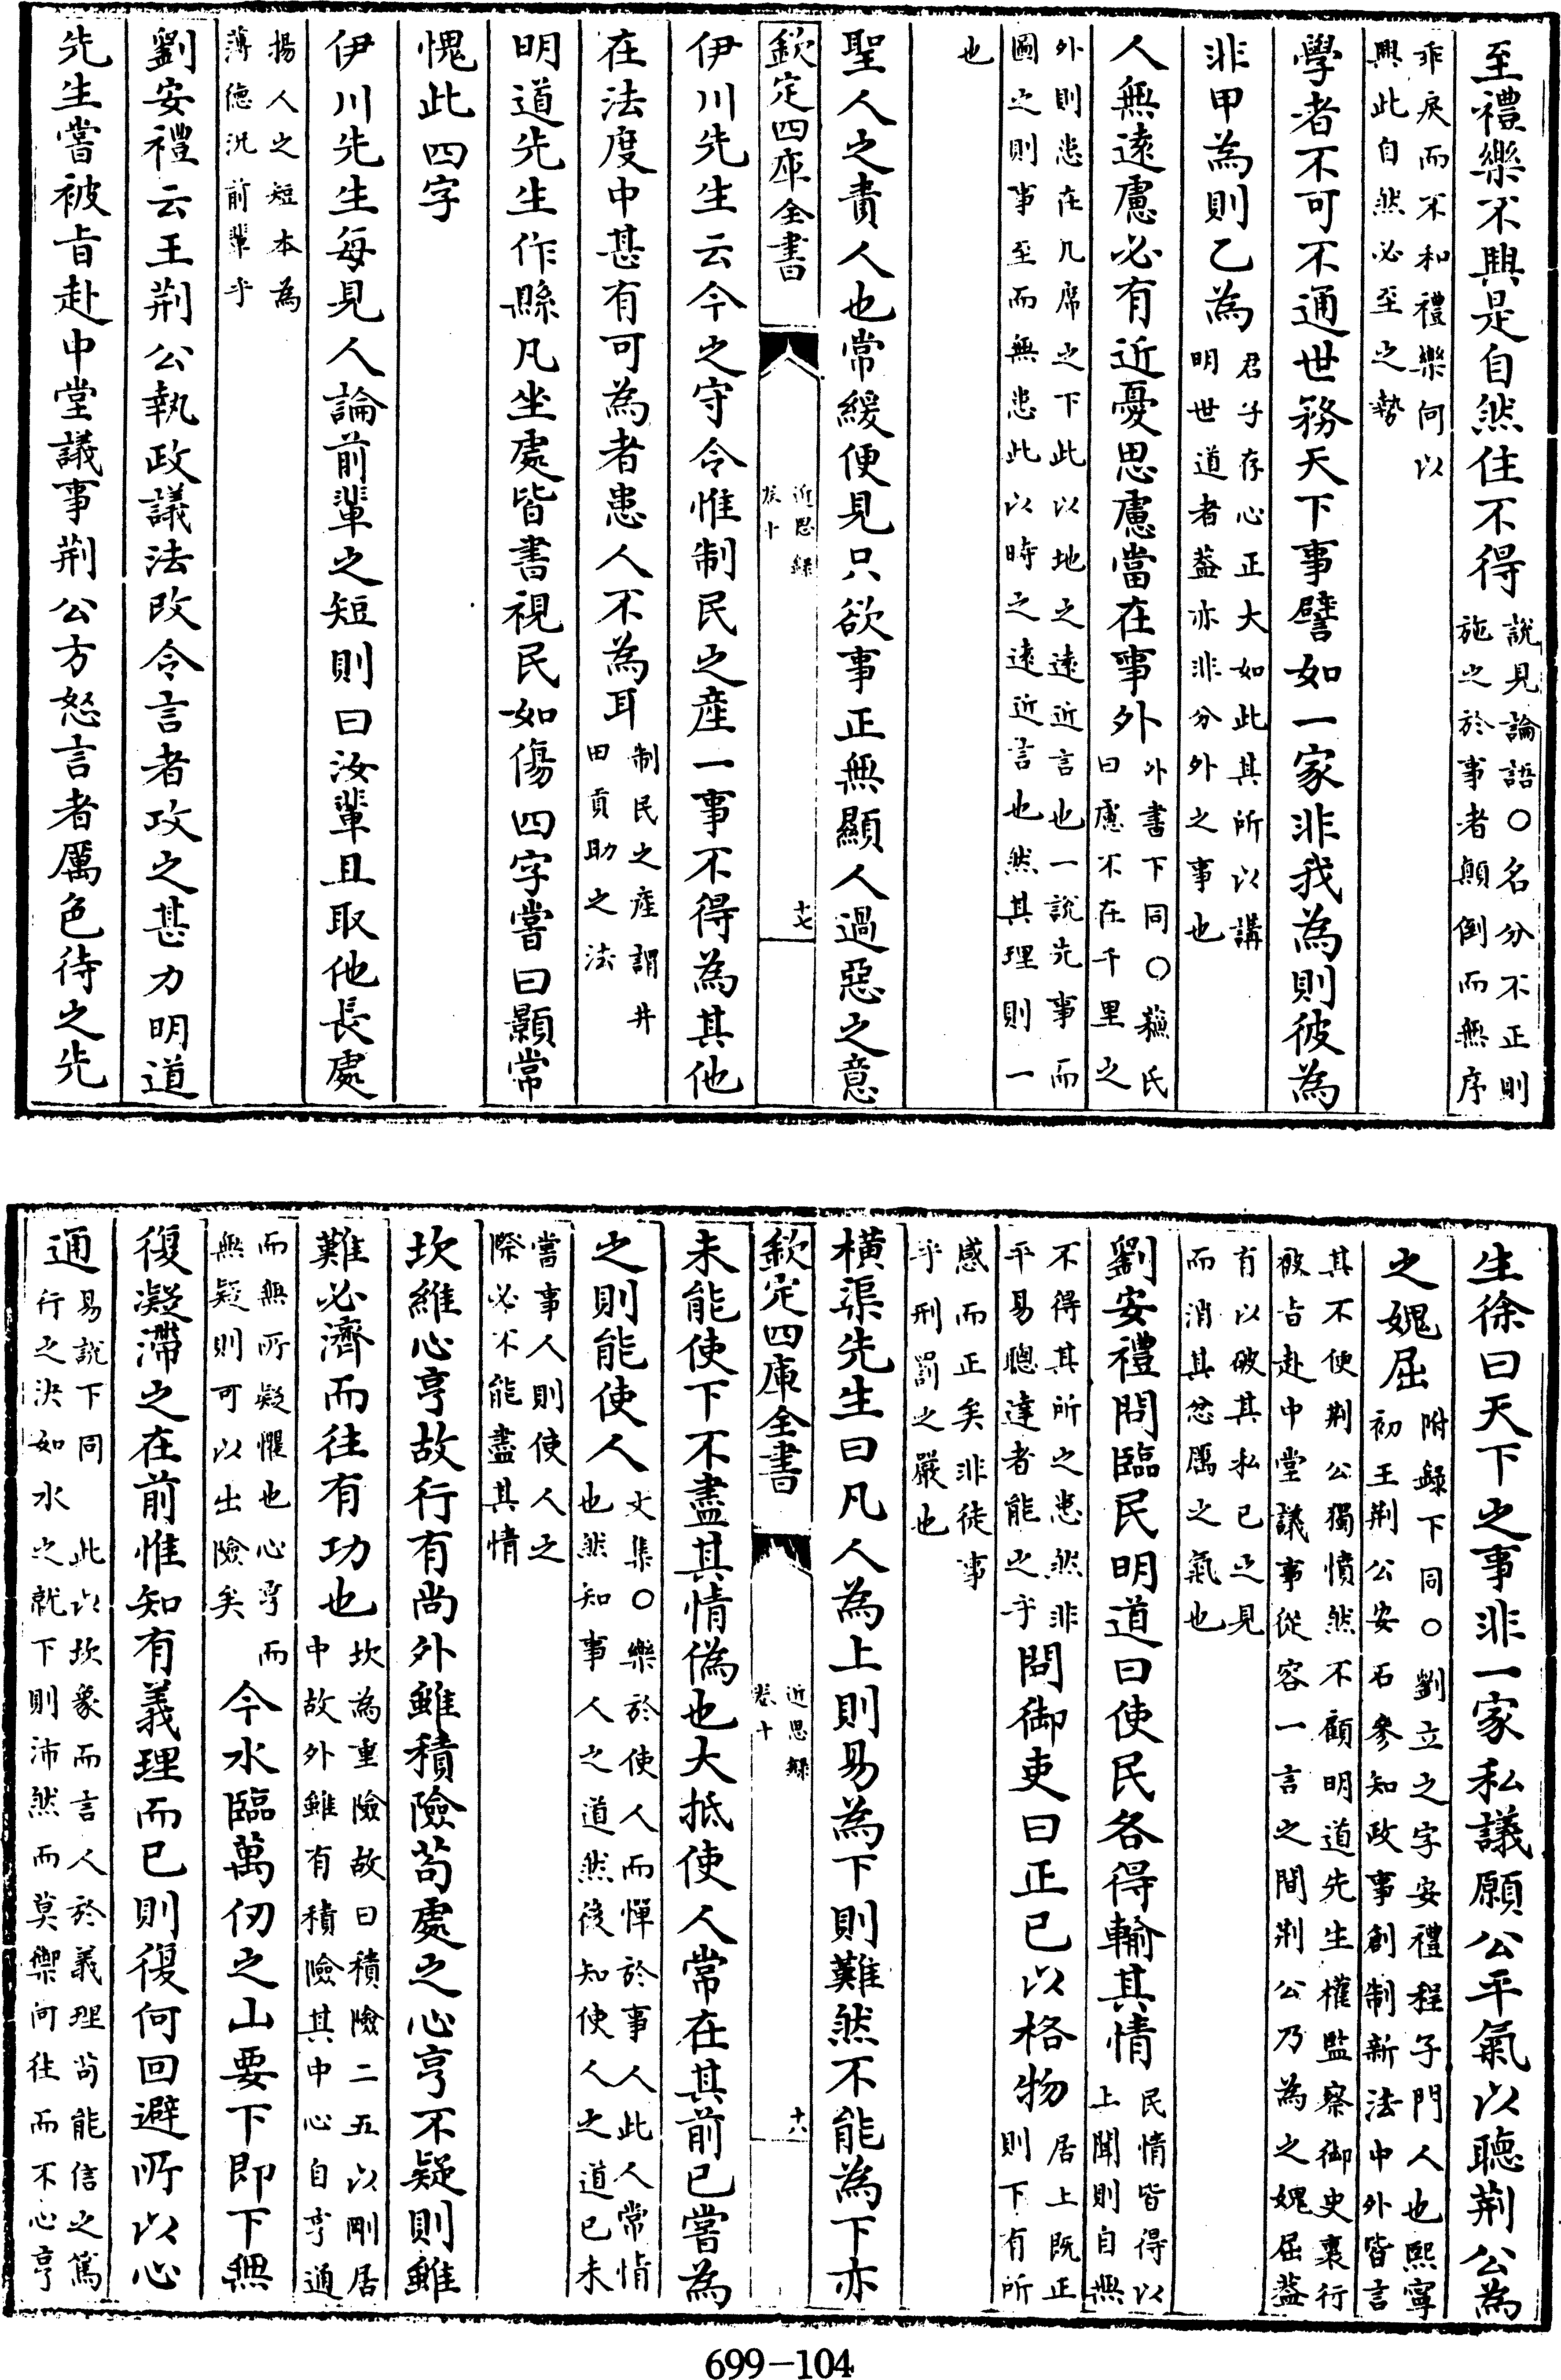 至禮樂不興是自然住不得說見論語○名分不正則施之於事者顛倒而無序
乖戾而不和禮樂何以興此自然必至之勢
學者不可不通世務天下事譬如一家非我為則彼為
非甲為則乙為君子存心正大如此其所以講明世道者蓋亦非分外之事也
人無逺慮必有近憂思慮當在事外外書下同○蘇氏曰慮不在千里之
外則患在几席之下此以地之逺近言也一說先事而圖之則事至而無患此以時之逺近言也然其理則一
也
聖人之責人也常緩便見只欲事正無顯人過惡之意
欽定四庫全書
近思録
卷十
十七
伊川先生云今之守令惟制民之産一事不得為其他
在法度中甚有可為者患人不為耳制民之産謂井田貢助之法
明道先生作縣凡坐處皆書視民如傷四字嘗曰顥常
愧此四字
伊川先生每見人論前輩之短則曰汝輩且取他長處
揚人之短本為薄德況前輩乎
劉安禮云王荆公執政議法改令言者攻之甚力明道
先生嘗被旨赴中堂議事荆公方怒言者厲色待之先
生徐曰天下之事非一家私議願公平氣以聽荆公為
之媿屈附録下同○劉立之字安禮程子門人也熙寧初王荆公安石參知政事創制新法中外皆言
其不便荆公獨憤然不顧明道先生權監察御史裏行被旨赴中堂議事從容一言之間荆公乃為之媿屈蓋
有以破其私已之見而消其忿厲之氣也
劉安禮問臨民明道曰使民各得輸其情民情皆得以上聞則自無
不得其所之患然非平易聰達者能之乎問御吏曰正已以格物居上既正則下有所
感而正矣非徒事乎刑罰之嚴也
横渠先生曰凡人為上則易為下則難然不能為下亦
欽定四庫全書
近思録
卷十
十八
未能使下不盡其情偽也大抵使人常在其前已嘗為
之則能使人文集○樂於使人而憚於事人此人常情也然知事人之道然後知使人之道已未
嘗事人則使人之際必不能盡其情
坎維心亨故行有尚外雖積險苟處之心亨不疑則雖
難必濟而往有功也坎為重險故曰積險二五以剛居中故外雖有積險其中心自亨通
而無所疑懼也心亨而無疑則可以出險矣今水臨萬仞之山要下即下無
復凝滯之在前惟知有義理而已則復何回避所以心
通易說下同　此以坎象而言人於義理苟能信之篤行之決如水之就下則沛然而莫禦何往而不心亨
699-104